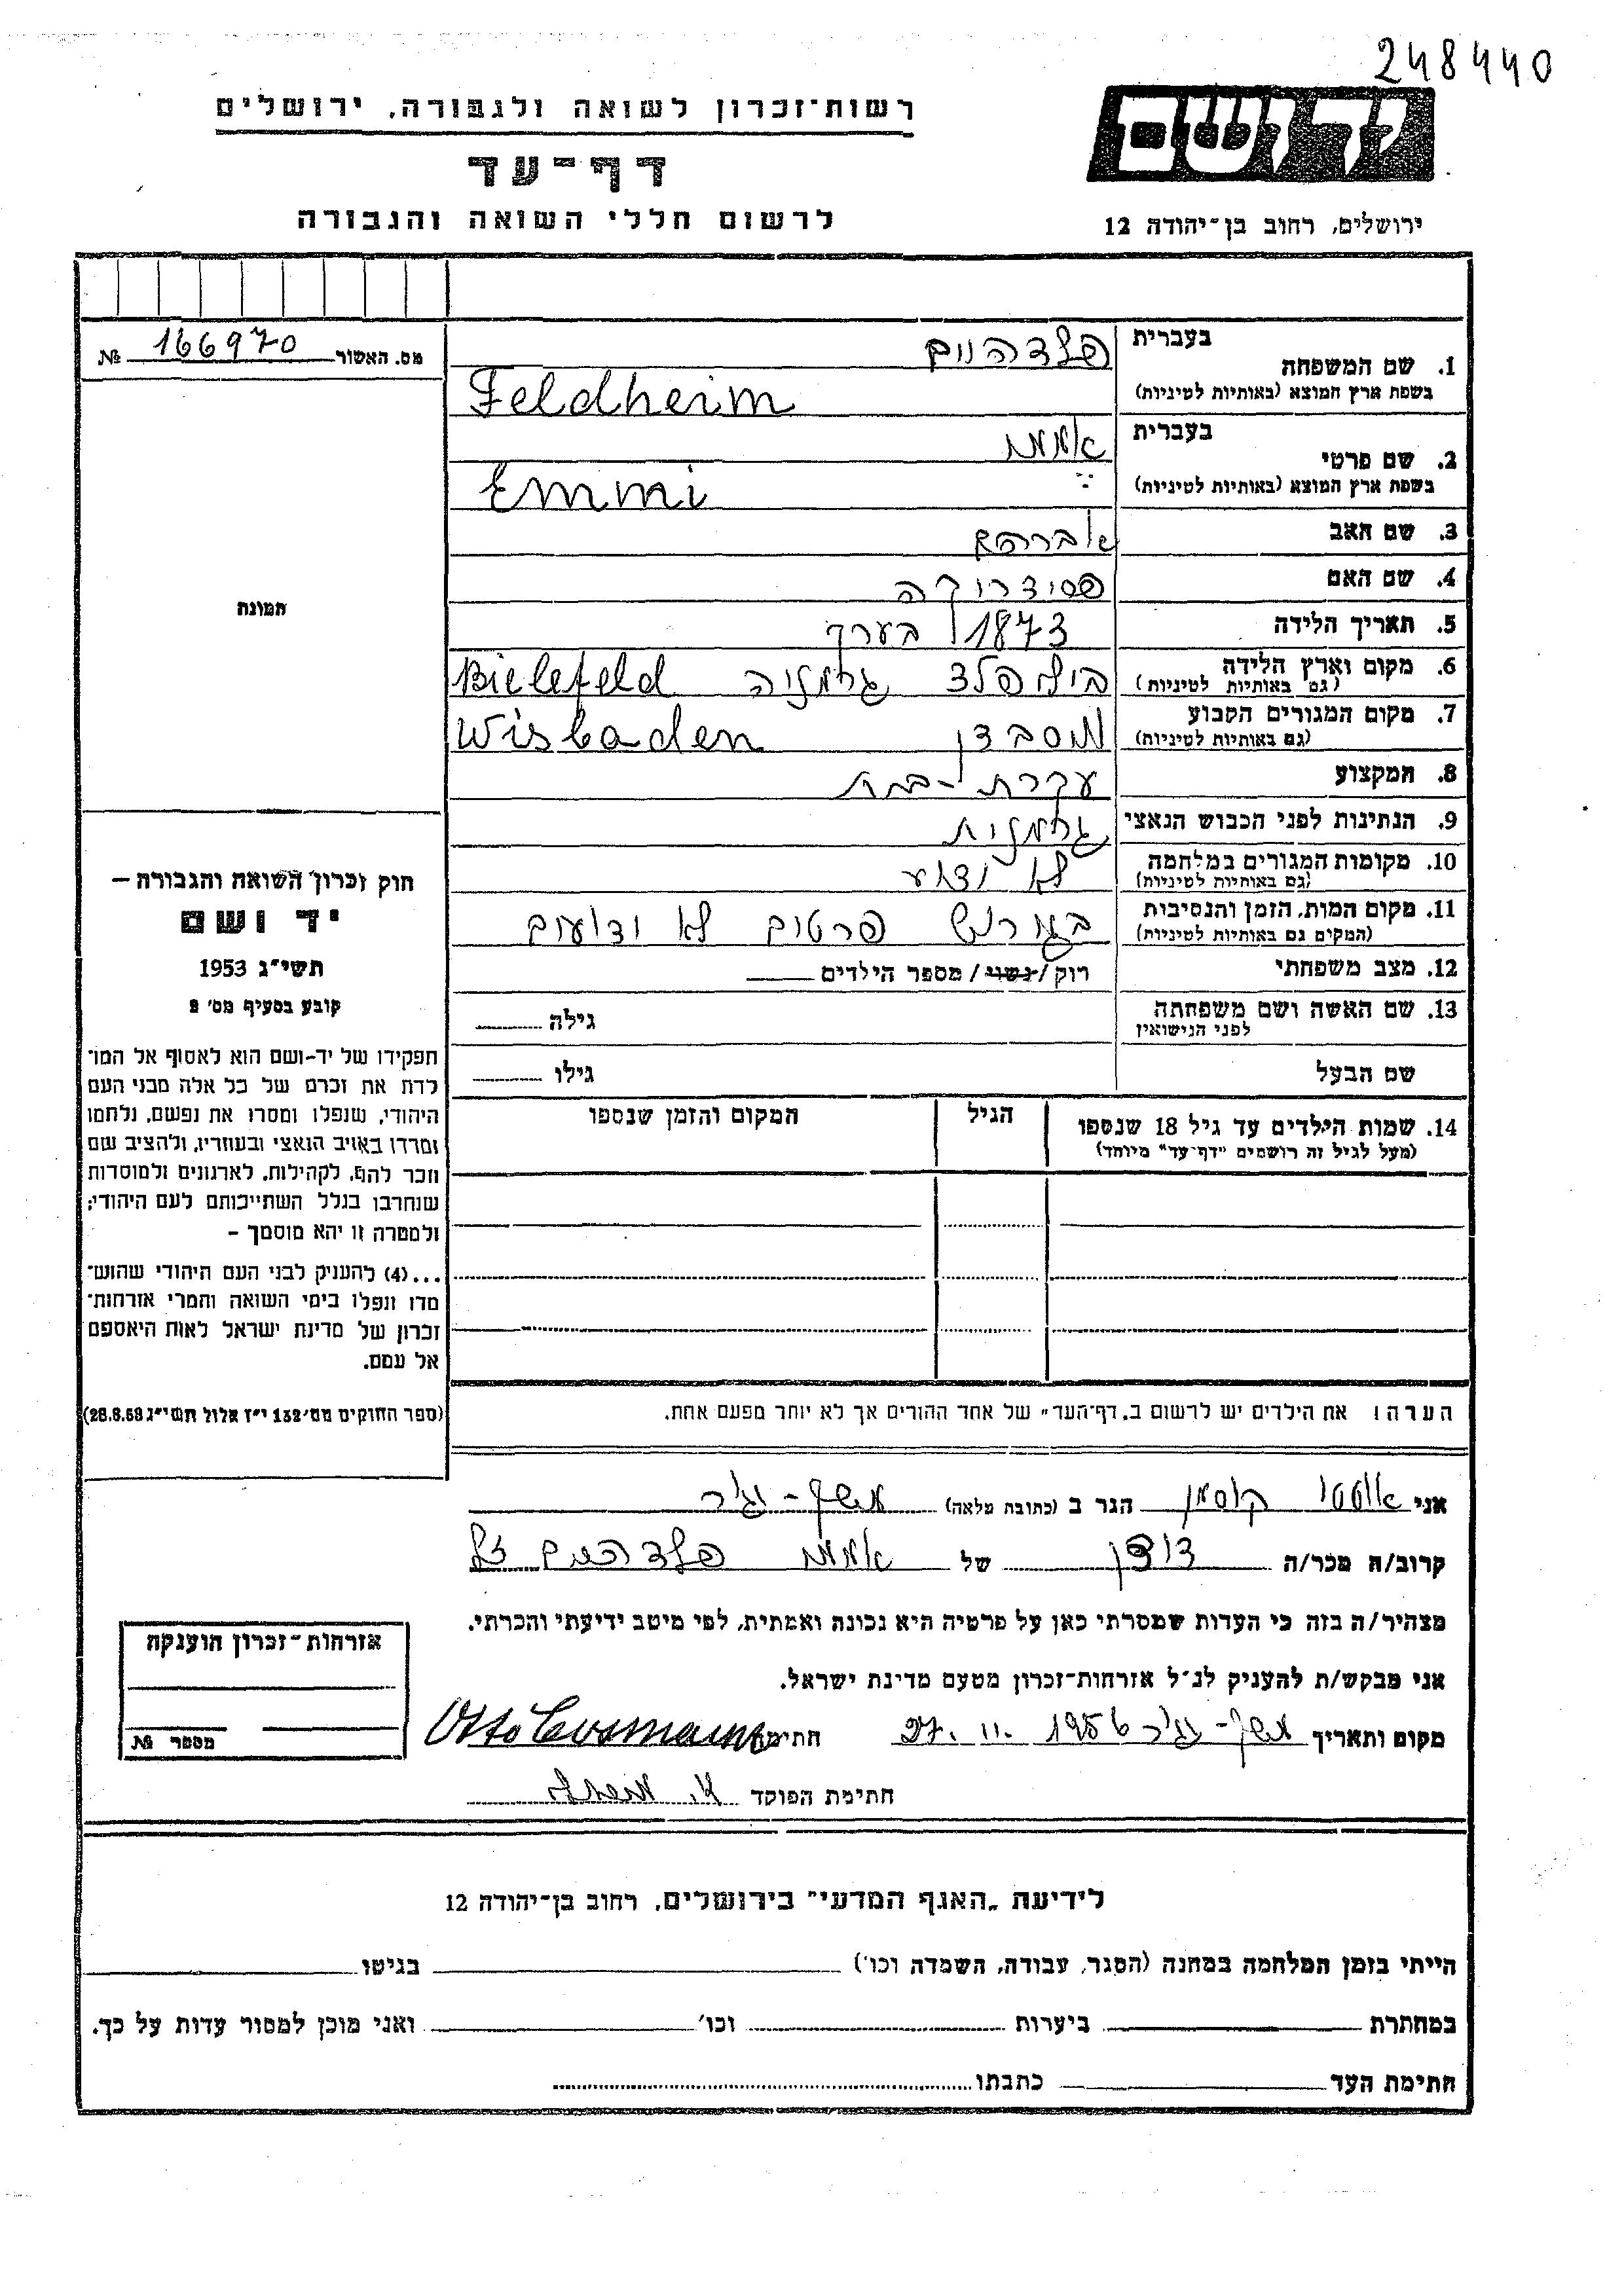 248440
רשות־זכרון לשואה ולגבורה, ירושלים
יד ושם
דף־עד
לרשום חללי השואה והגבורה
ירושלים, רחוב בן־יהודה 12
מס. האשור 166970 №
בעברית פלדהיים
1. שם המשפחה
בשפת ארץ המוצא (באותיות לטיניות) Feldheim
בעברית אמי
2. שם פרטי
בשפת ארץ המוצא (באותיות לטיניות) Emmi
3. שם האב אברהם
4. שם האם
5. תאריך הלידה 1873 בערך
6. מקום וארץ הלידה בילפלד גרמניה Bielefeld
(גם באותיות לטיניות)
7. מקום המגורים הקבוע ויסבדן Wisbaden
(גם באותיות לטיניות)
8. המקצוע עקרת-בית
9. הנתינות לפני הכבוש הנאצי גרמנית
10. מקומות המגורים במלחמה לא ידוע
(גם באותיות לטיניות)
11. מקום המות, הזמן והנסיבות בגורוש פרטים לא ידועים
(המקום גם באותיות לטיניות)
12. מצב משפחתי רוק / נשוי / מספר הילדים
13. שם האשה ושם משפחתה גילה
לפני הנישואין
שם הבעל גילו
14. שמות הילדים עד גיל 18 שנספו הגיל המקום והזמן שנספו
(מעל לגיל זה רושמים "דף־עד" מיוחד)
הערה: את הילדים יש לרשום ב„דף־העד" של אחד ההורים אך לא יותר מפעם אחת.
תמונה
חוק זכרון השואה והגבורה —
יד ושם
תשי״ג 1953
קובע בסעיף מס׳ 2
תפקידו של יד-ושם הוא לאסוף אל המו־
לדת את זכרם של כל אלה מבני העם
היהודי, שנפלו ומסרו את נפשם, נלחמו
ומרדו באויב הנאצי ובעוזריו, ולהציב שם
וזכר להם, לקהילות, לארגונים ולמוסדות
שנחרבו בגלל השתייכותם לעם היהודי;
ולמטרה זו יהא מוסמך —
...(4) להעניק לבני העם היהודי שהוש־
מדו ונפלו בימי השואה והמרי אזרחות־
זכרון של מדינת ישראל לאות היאספם
אל עמם.
(ספר החוקים מס׳ 132 י״ז אלול תשי״ג 28.8.53)
אני אוטו קוסמן הגר ב (כתובת מלאה) משק-יגור
קרוב/ה מכר/ה דודן של אמי פלדהיים ז״ל
מצהיר/ה בזה כי העדות שמסרתי כאן על פרטיה היא נכונה ואמתית, לפי מיטב ידיעתי והכרתי.
אני מבקש/ת להעניק לנ״ל אזרחות־זכרון מטעם מדינת ישראל.
מקום ותאריך משק-יגור 27. 11. 1956 חתימה Otto Cosmann
חתימת הפוקד
אזרחות־זכרון הוענקה
מספר №
לידיעת „האגף המדעי" בירושלים, רחוב בן־יהודה 12
הייתי בזמן המלחמה במחנה (הסגר, עבודה, השמדה וכו׳) בגיטו
במחתרת ביערות וכו׳ ואני מוכן למסור עדות על כך.
חתימת העד כתבתו